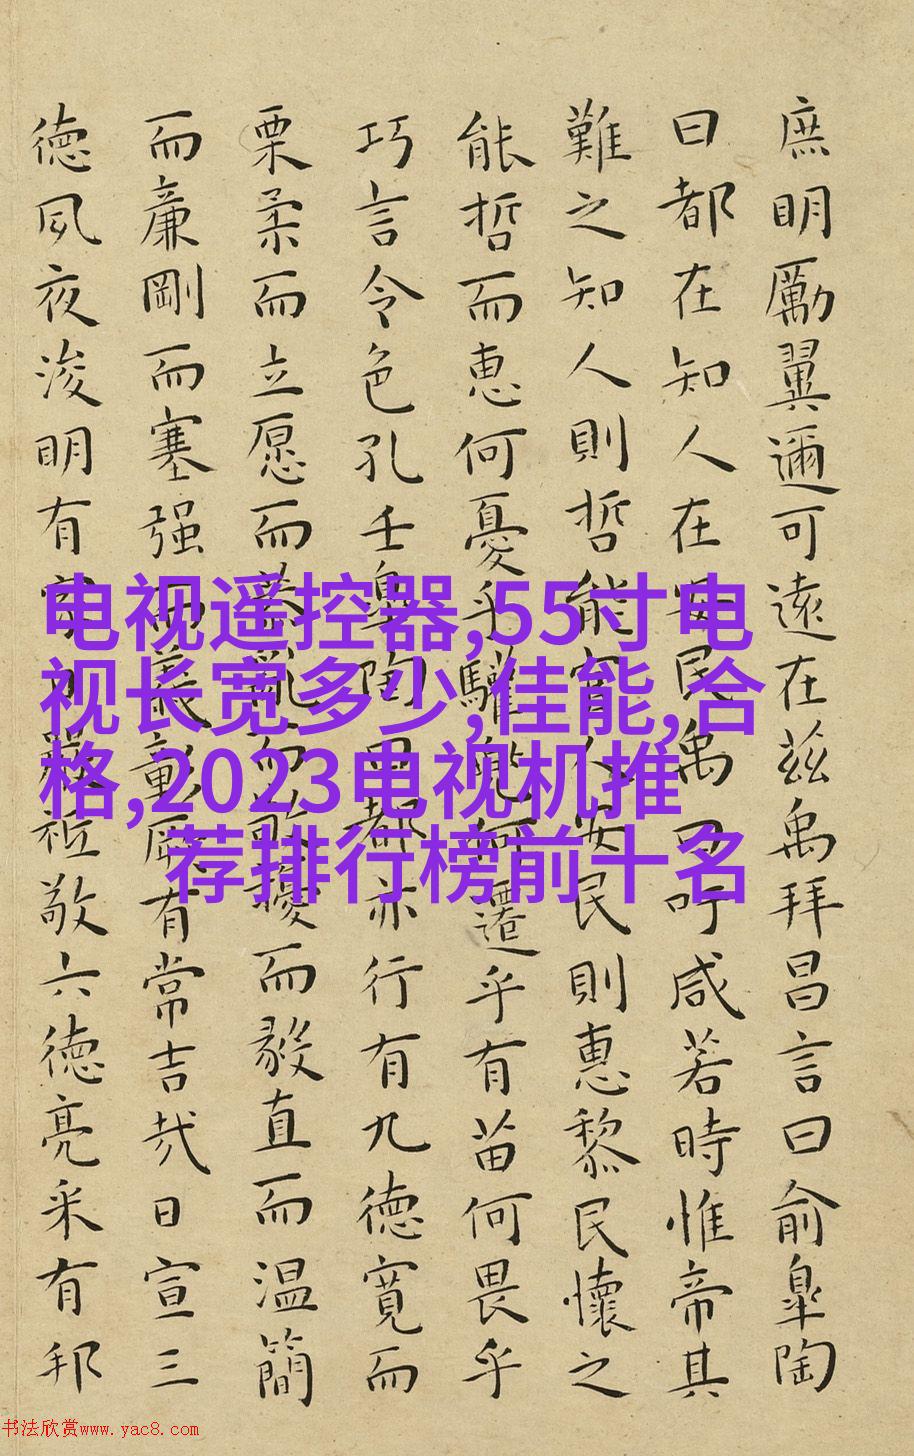 庶明勵翼邇可遠在茲禹拜昌言曰俞臯陶
曰都在知人在安民禹曰吁咸若時惟帝其
難之知人則哲能官人安民則惠黎民懷之
能哲而惠何憂乎驩兜何遷乎有苗何畏乎
巧言令色孔壬臯陶曰都亦行有九德寬而
栗柔而立愿而恭亂而敬擾而毅直而温簡
而廉剛而塞强而義彰厥有常吉哉日宣三
德夙夜浚明有家日嚴祗敬六德亮采有邦
电视遥控器,55寸电
视长宽多少,佳能,合
格,2023电视机推
荐排行榜前十名
书法欣赏www.yac8.com